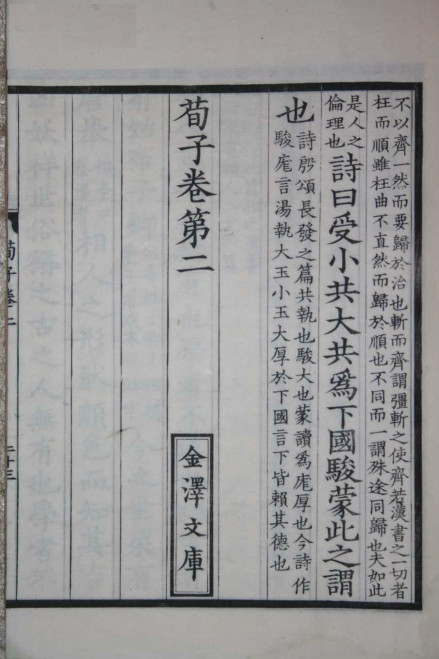 不以齊一然而要歸於治也斬而齊謂彊斬之使齊若漢書之一切者
枉而順雖枉曲不直然而歸於順也不同而一謂殊途同歸也夫如此
是人之
倫理也
詩曰受小共大共爲下國駿蒙此之謂
也
詩殷頌長發之篇共執也駿大也蒙讀爲厖厚也今詩作
駿厖言湯執大玉小玉大厚於下國言下皆賴其德也
荀子卷第二
金澤文庫
荀子卷二
二十三